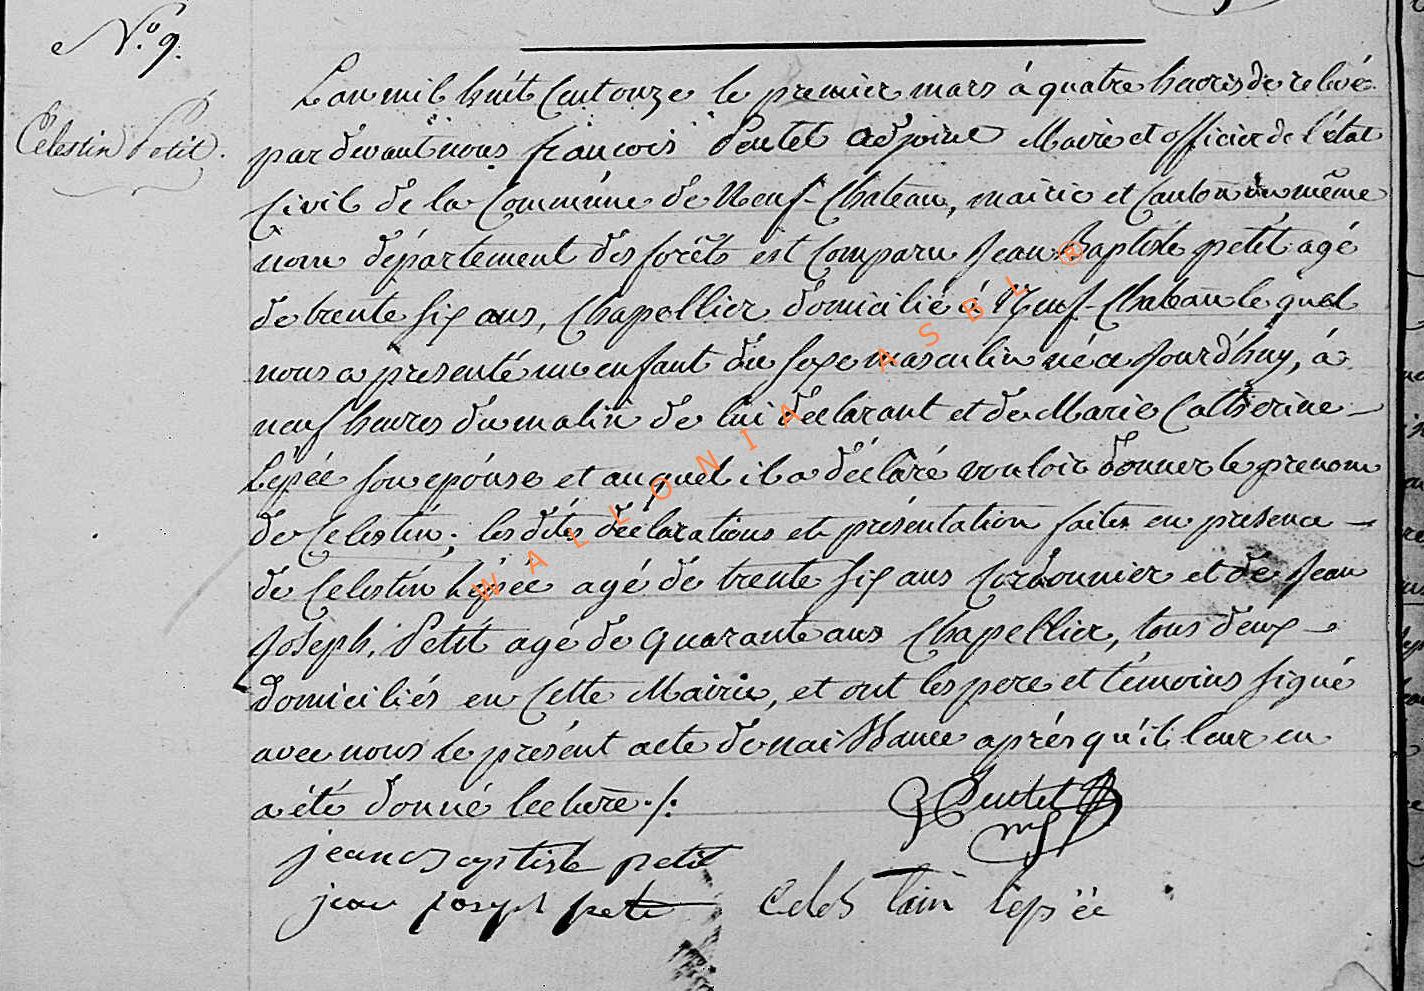 N.º 9.
Celestin Petit.
L'an mil huit Cent onze le premier mars à quatre heures de relevé
par devant nous françois Pentel adjoint Maire et officier de l'état
Civil de la Commune de Neuf-Chateau, mairie et Canton du même
nom département des forêts est Comparu Jean Baptiste petit agé
de trente six ans, Chapellier domicilié à Neuf-Chateau le quel
nous a présenté un enfant du sexe masculin né ce jourd'huy, à
neuf heures du matin de lui déclarant et de Marie Catherine
Lépée son epouse et auquel il a déclaré vouloir donner le prenom
de Celestin; les dites déclarations et présentation faites en presence
de Celestin Lépée agé de trente six ans Cordonnier et de Jean
Joseph Petit agé de quarante ans Chapellier, tous deux
domiciliés en Cette Mairie, et ont les pere et témoins signé
avec nous le présent acte de naissance après qu'il leur en
a été donné lecture ./.
jean baptiste petit
jean joseph petit Celestain lépée
WALLONIA ASBL ®